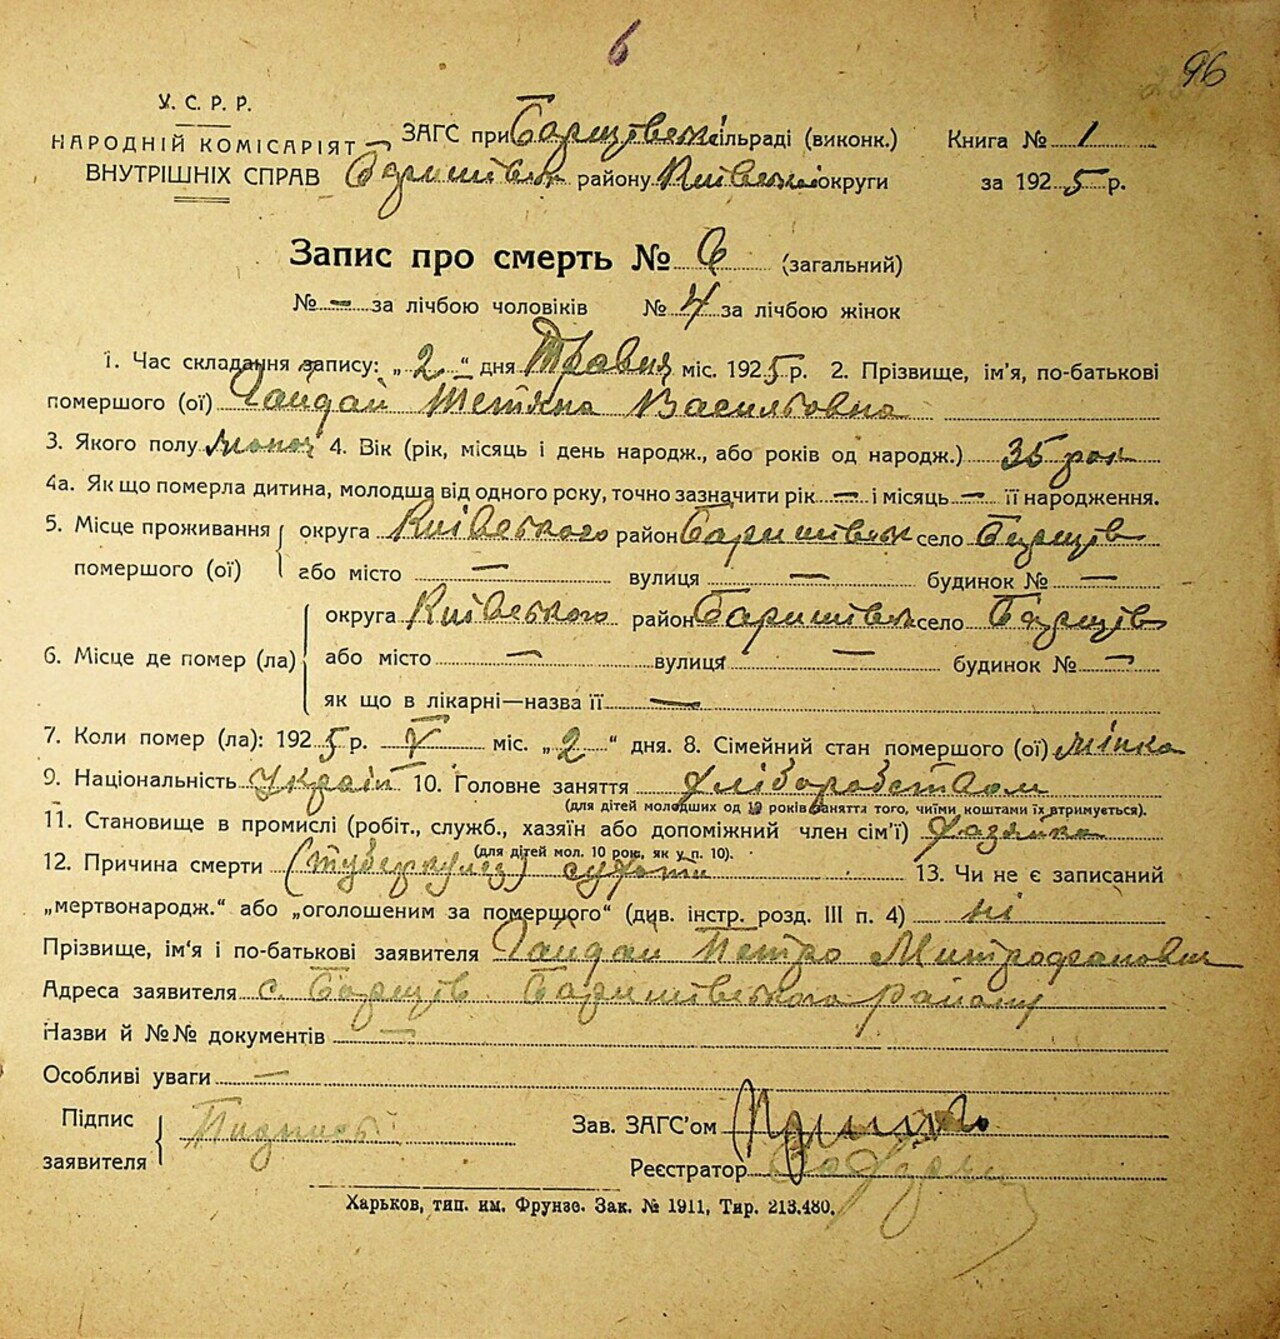 6
96
У. С. Р. Р.
НАРОДНІЙ КОМІСАРІЯТ
ВНУТРІШНІХ СПРАВ
ЗАГС при Борщівській сільраді (виконк.)
Баришівськ району Київської округи
Книга № 1
за 1925 р.
Запис про смерть № 6 (загальний)
№ — за лічбою чоловіків № 4 за лічбою жінок
1. Час складання запису: „2“ дня Травня міс. 1925 р. 2. Прізвище, ім'я, по-батькові
помершого (ої) Гайдай Тетяна Васильовна
3. Якого полу 4. Вік (рік, місяць і день народж., або років од народж.) 35 рок
4а. Як що померла дитина, молодша від одного року, точно зазначити рік — і місяць — її народження.
5. Місце проживання помершого (ої) округа Київського район Баришівськ село Борщів
або місто — вулиця — будинок № —
6. Місце де помер (ла) округа Київського район Баришівськ село Борщів
або місто — вулиця — будинок № —
як що в лікарні—назва її —
7. Коли помер (ла): 1925 р. V міс. „2“ дня. 8. Сімейний стан помершого (ої) жінка
9. Національність Україн 10. Головне заняття хліборобством
(для дітей молодших од 10 років заняття того, чиїми коштами їх втримується).
11. Становище в промислі (робіт., служб., хазяїн або допоміжний член сім'ї) хазяйка
(для дітей мол. 10 рок, як у п. 10).
12. Причина смерти (туберкулез) сухоти 13. Чи не є записаний
„мертвонародж.“ або „оголошеним за помершого“ (див. інстр. розд. III п. 4) ні
Прізвище, ім'я і по-батькові заявителя Гайдай Петро Митрофанович
Адреса заявителя с. Борщів Баришівського району
Назви й №№ документів —
Особливі уваги —
Підпис заявителя Подпись
Зав. ЗАГС'ом
Реєстратор
Харьков, тип. им. Фрунзе. Зак. № 1911, Тир. 213.480.